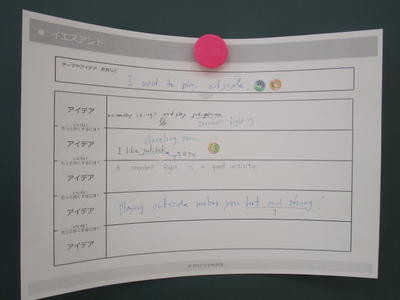 イエスアンド
テーマやアイデア、意見など
I want to play outside.
アイデア
and play
Snowball fighting.
いいね！
もっと良くするには？
shooting
アイデア
I like
いいね！
もっと良くするには？
A snowball fight is a good activity.
アイデア
いいね！
もっと良くするには？
アイデア
playing outside makes you hot and strong!
いいね！
もっと良くするには？
アイデア